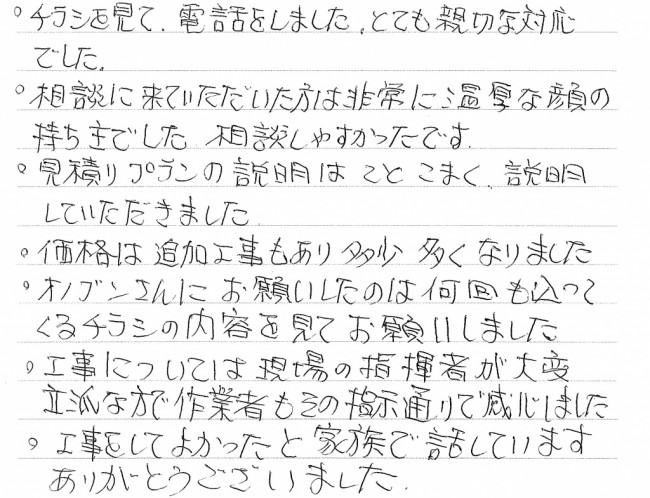 。チラシを見て、電話をしました。とても親切な対応
でした。
。相談に来ていただいた方は非常に温厚な顔の
持ち主でした。相談しやすかったです。
。見積りプランの説明はことこまく、説明
していただきました。
。価格は追加工事もあり多少多くなりました
。オノブンさんにお願いしたのは何回も込って
くるチラシの内容を見てお願いしました
。工事については現場の指揮者が大変
立派な方で作業者もその指示通りで感心しました
。工事をしてよかったと家族で話しています
ありがとうございました。